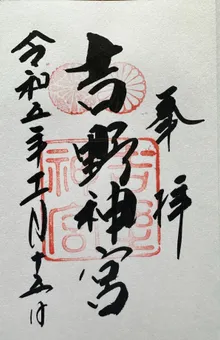 奉拝
吉野神宮
令和五年 月十五日
吉野
神宮